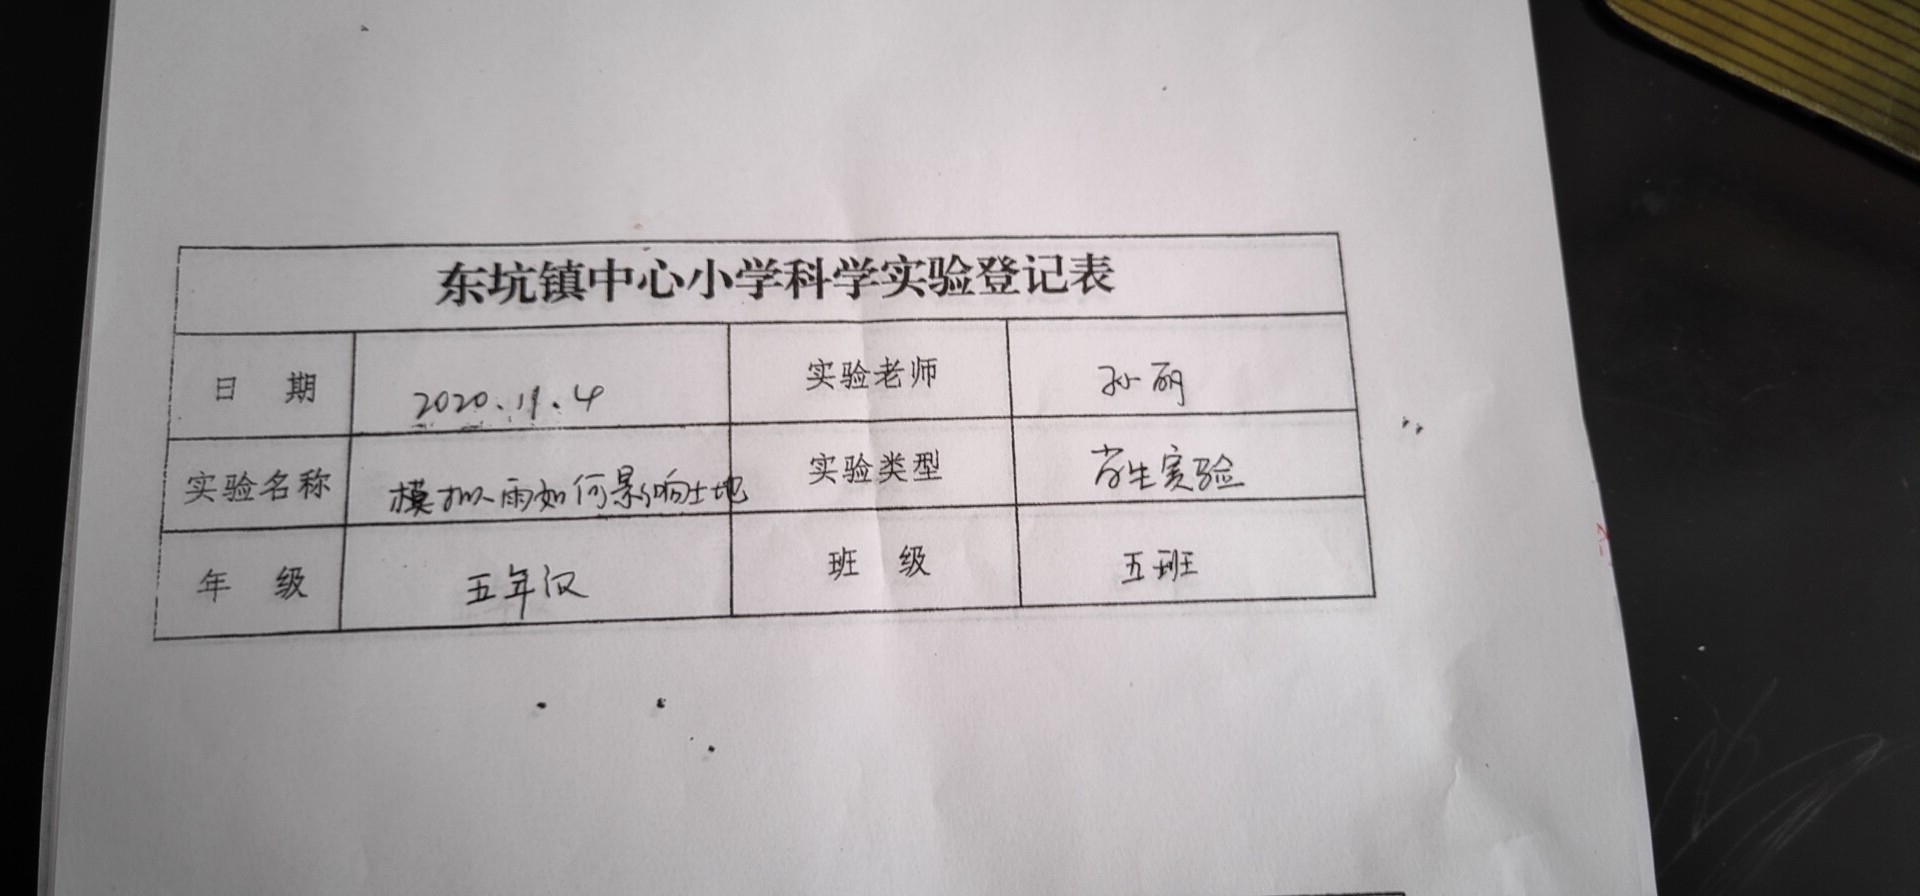 东坑镇中心小学科学实验登记表
日 期 2020.11.4 实验老师 孙丽
实验名称 模拟雨如何影响土地 实验类型 学生实验
年 级 五年级 班 级 五班